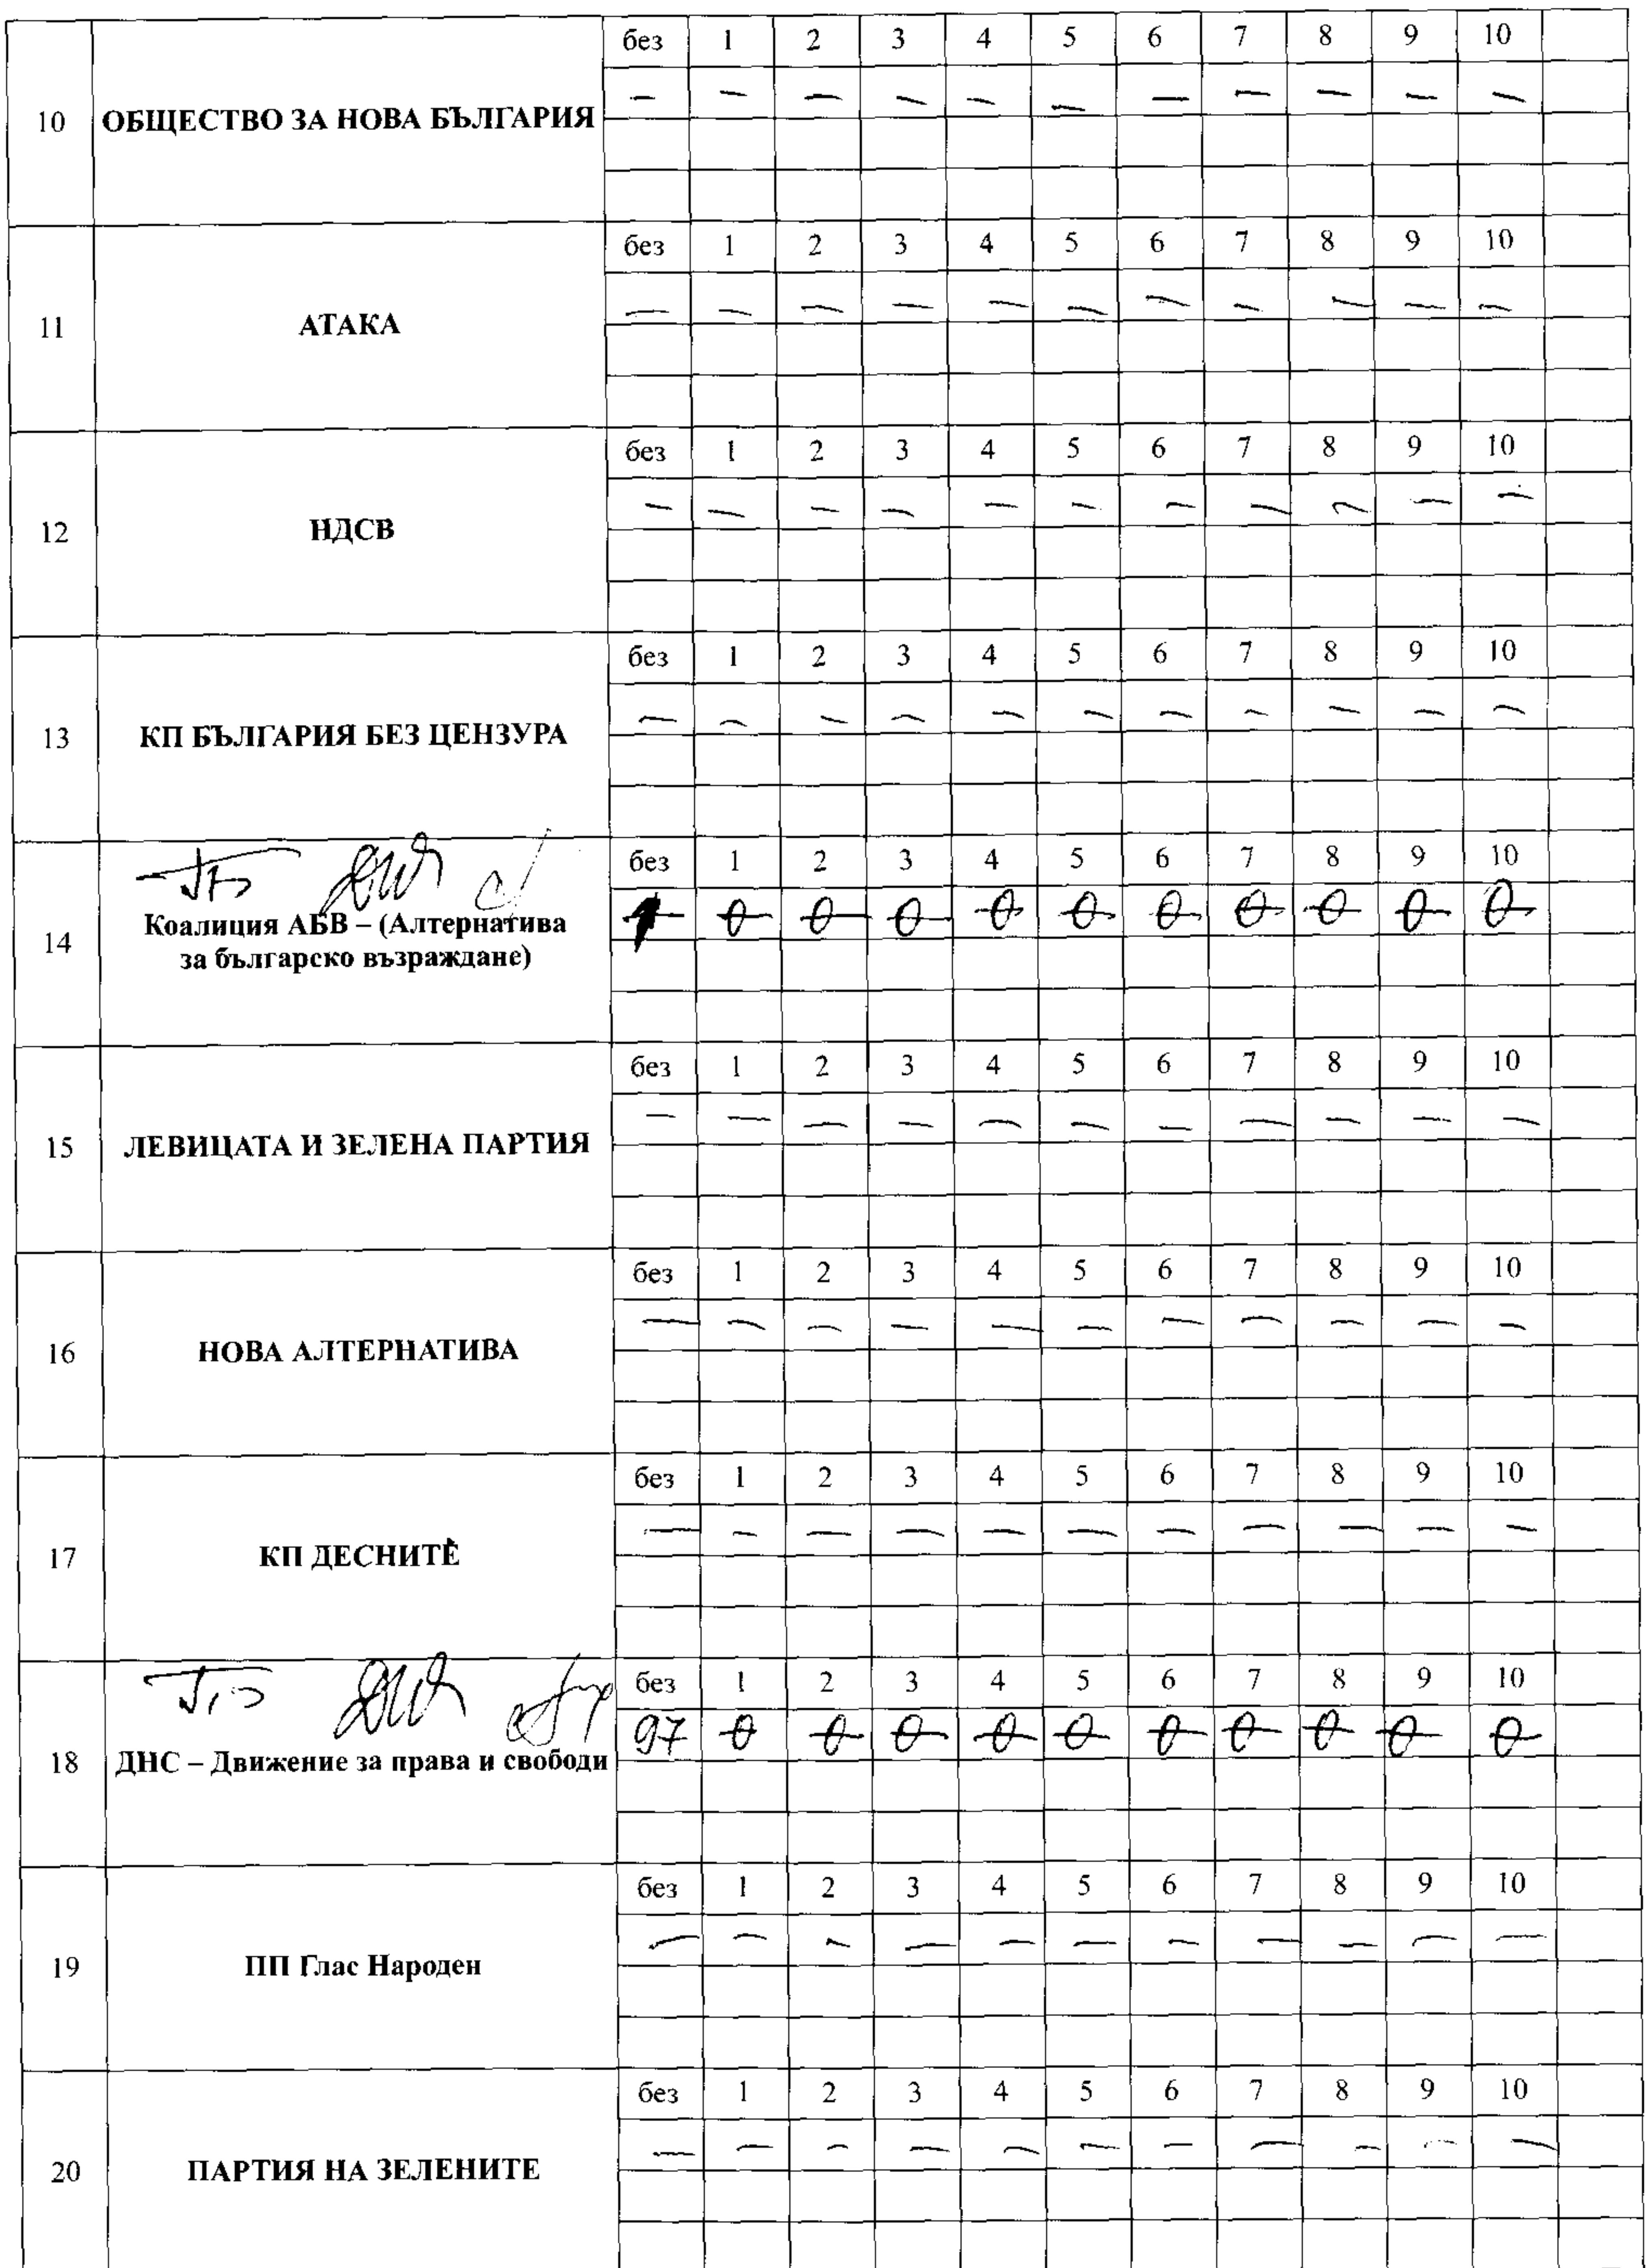 без 1 2 3 4 5 6 7 8 9 10
10 ОБЩЕСТВО ЗА НОВА БЪЛГАРИЯ
– – – – – – – – – – –
без 1 2 3 4 5 6 7 8 9 10
11 АТАКА
– – – – – – – – – – –
без 1 2 3 4 5 6 7 8 9 10
12 НДСВ
– – – – – – – – – – –
без 1 2 3 4 5 6 7 8 9 10
13 КП БЪЛГАРИЯ БЕЗ ЦЕНЗУРА
– – – – – – – – – – –
без 1 2 3 4 5 6 7 8 9 10
0 0 0 0 0 0 0 0 0 0
14 Коалиция АБВ – (Алтернатива
за българско възраждане)
без 1 2 3 4 5 6 7 8 9 10
– – – – – – – – – – –
15 ЛЕВИЦАТА И ЗЕЛЕНА ПАРТИЯ
без 1 2 3 4 5 6 7 8 9 10
– – – – – – – – – – –
16 НОВА АЛТЕРНАТИВА
без 1 2 3 4 5 6 7 8 9 10
– – – – – – – – – – –
17 КП ДЕСНИТЕ
без 1 2 3 4 5 6 7 8 9 10
97 0 0 0 0 0 0 0 0 0 0
18 ДНС – Движение за права и свободи
без 1 2 3 4 5 6 7 8 9 10
– – – – – – – – – – –
19 ПП Глас Народен
без 1 2 3 4 5 6 7 8 9 10
– – – – – – – – – – –
20 ПАРТИЯ НА ЗЕЛЕНИТЕ